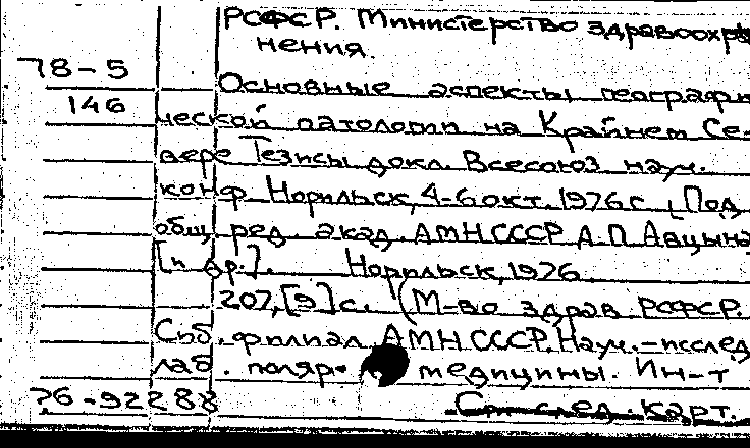 РСФСР. Министерство здравоохра
нения.
78-5
Основные аспекты географи
146
ческой патологии на Крайнем Се-
вере Тезисы докл. Всесоюз науч.
конф. Норильск, 4-6 окт. 1976 г [Под
общ. ред. акад. АМН СССР А.П Авцына
[и др.]. Норильск, 1976
207, [9] с. (М-во здрав. РСФСР.
Сиб. филиал АМН СССР. Науч.-исслед
лаб. поляр. медицины. Ин-т
76-92288
След. карт.